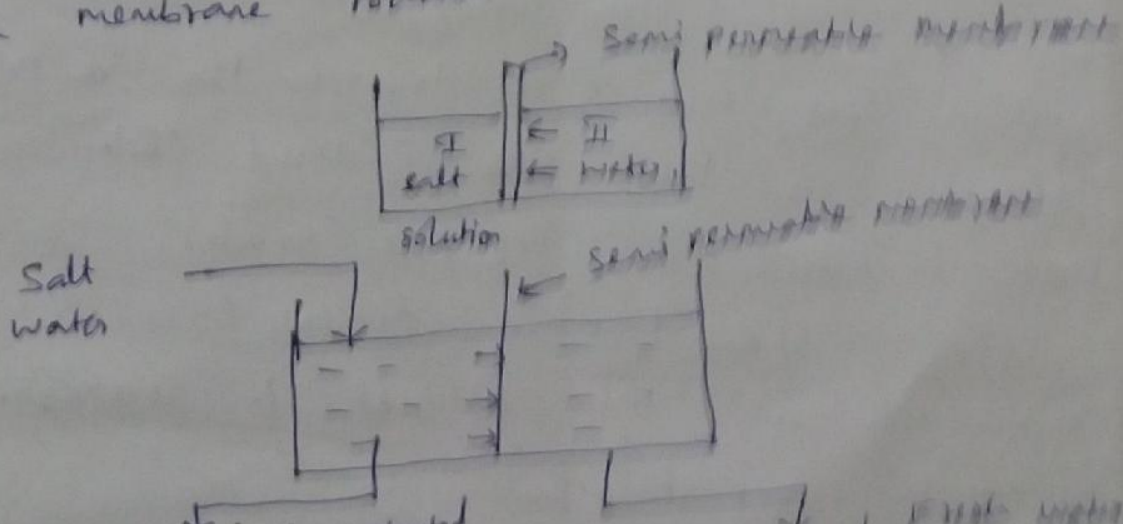 membrane
Semi permeable membrane
I II
salt water
solution
semi permeable membrane
Salt
water
Fresh water